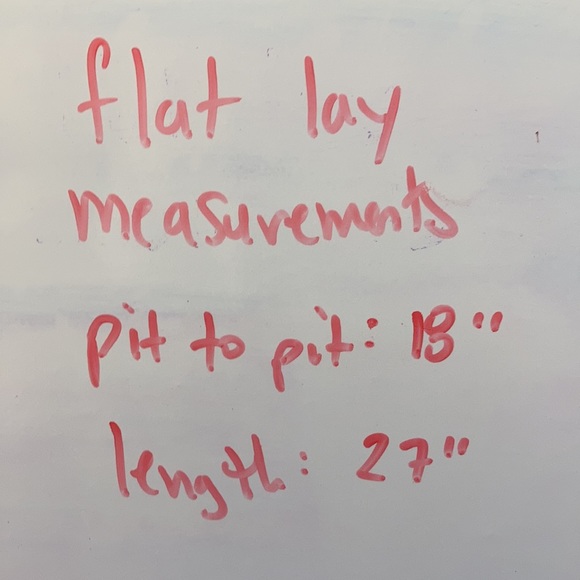 flat lay
measurements
pit to pit: 18"
length: 27"